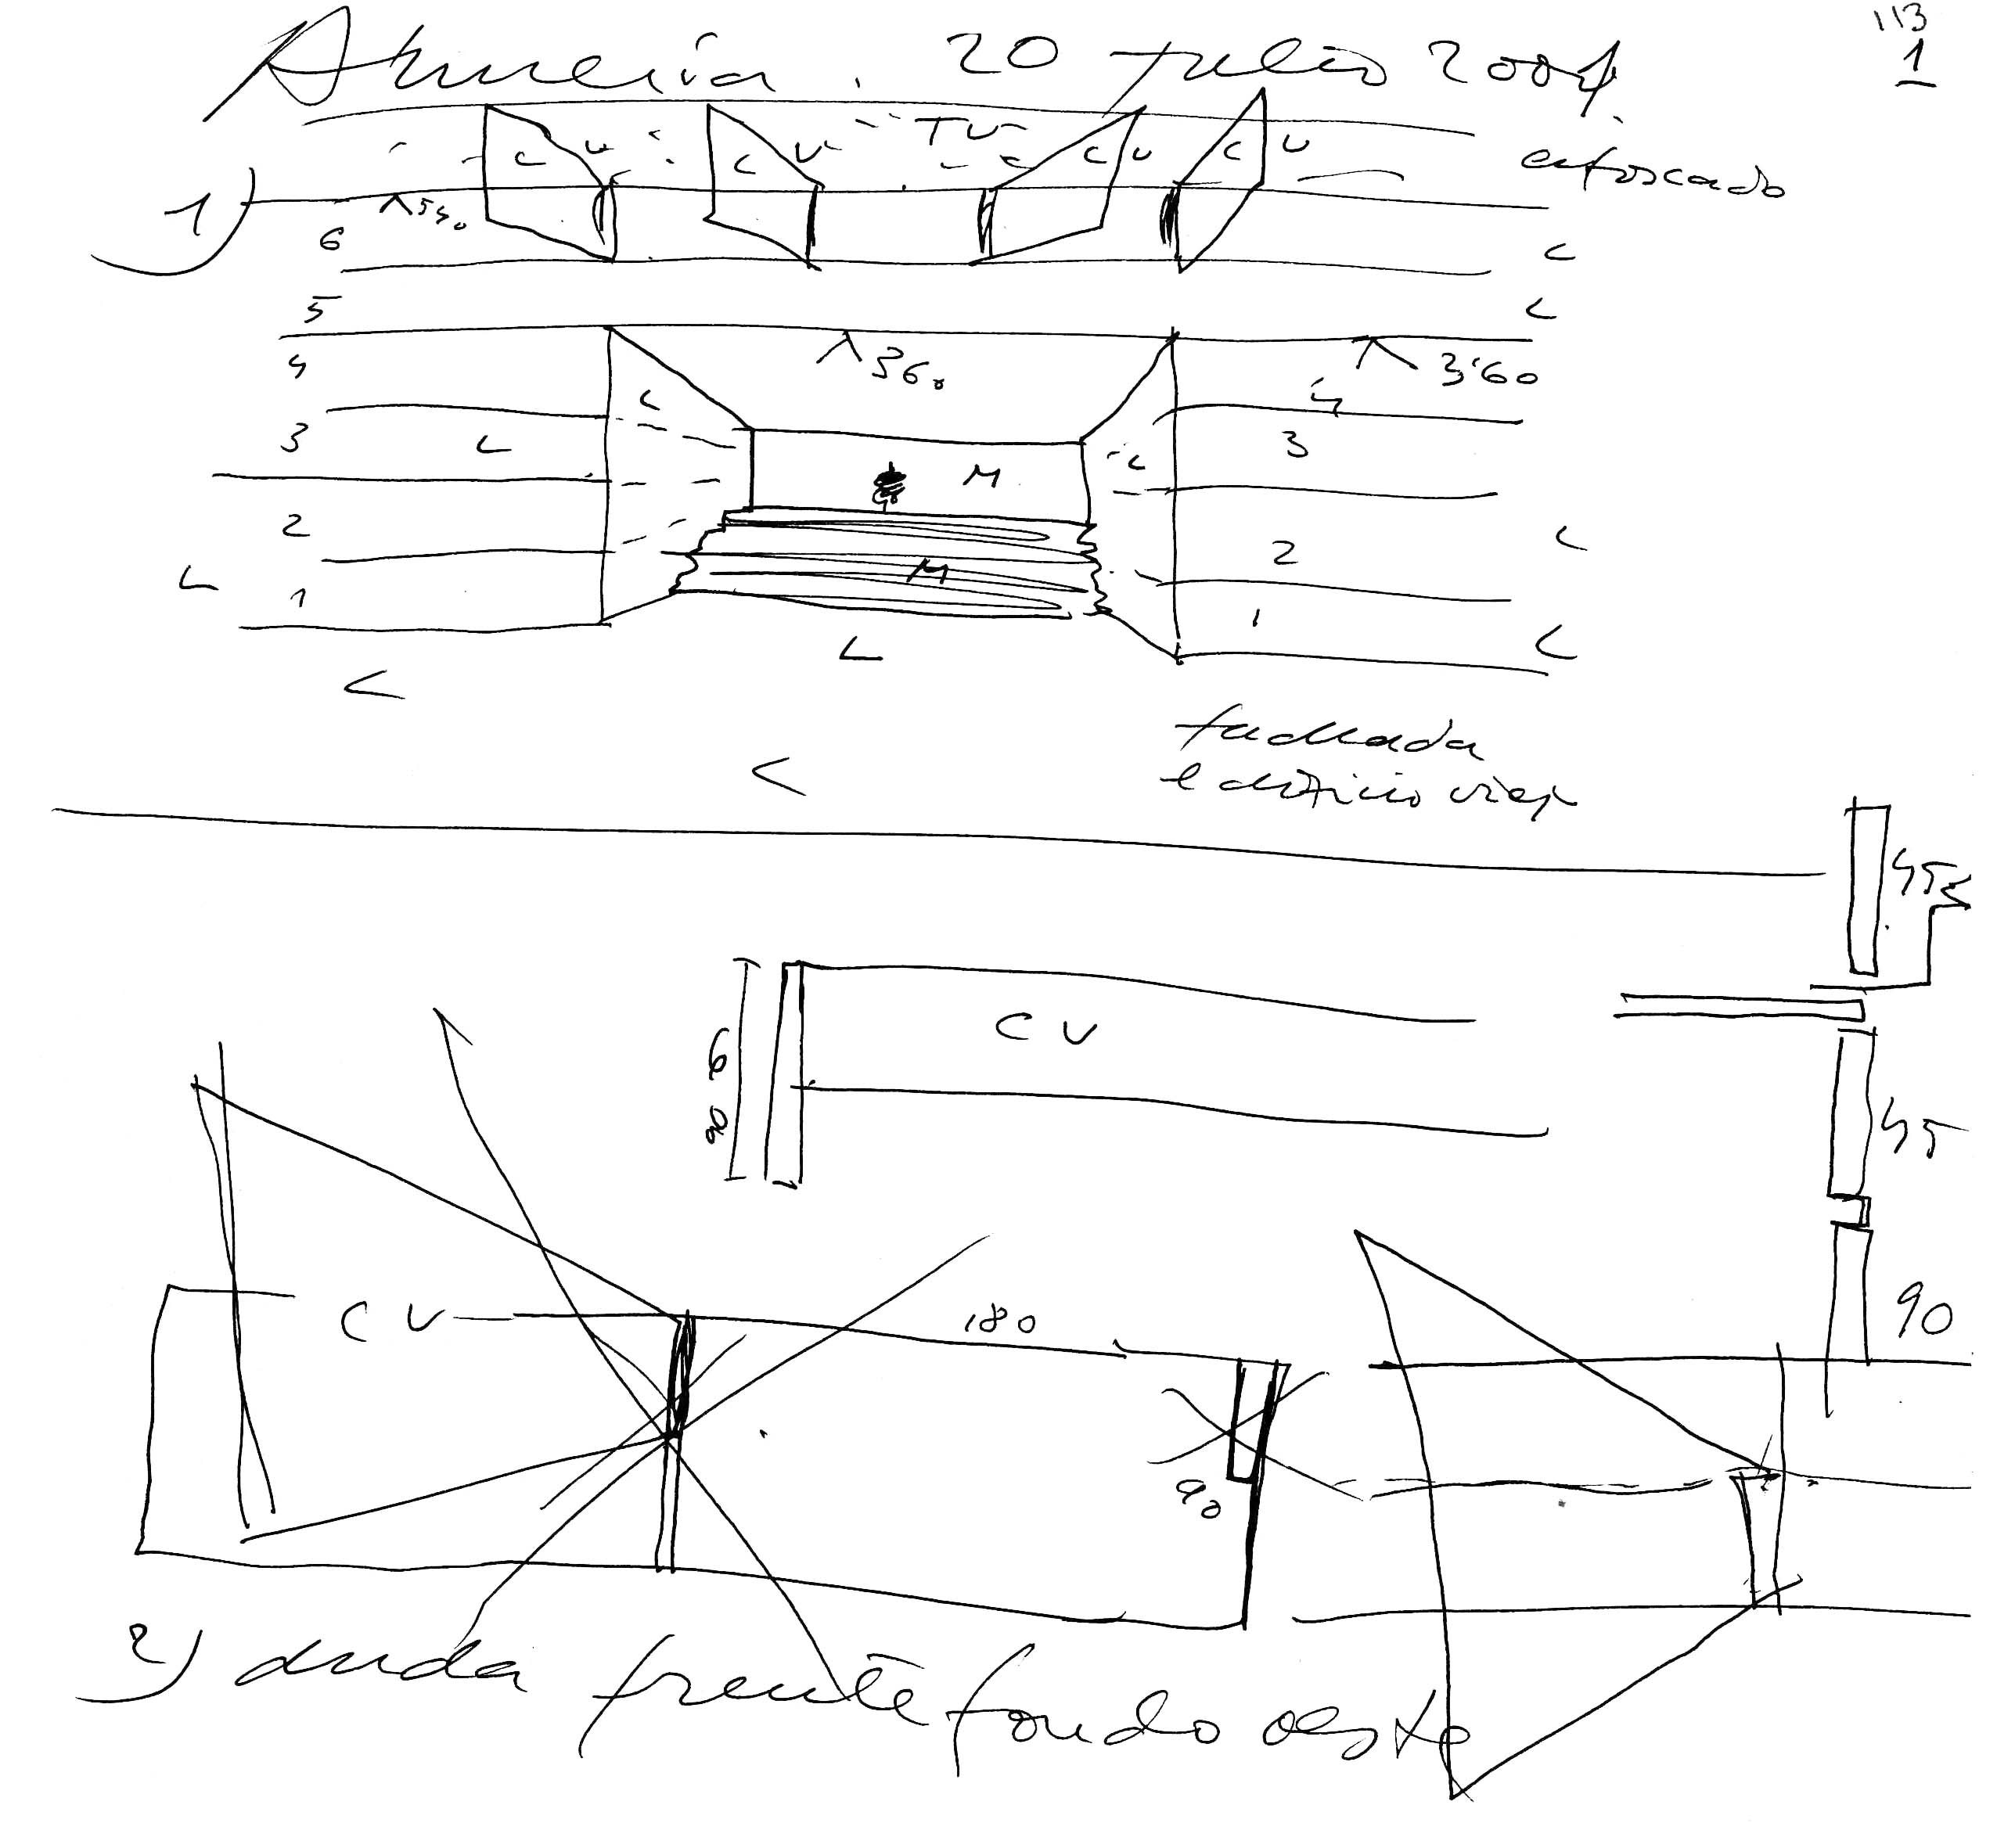 113
Almería . 20 Julio 2004.
1
C V C V TV C V C V
enfoscado
1)
540
6 C
5 C
4 360 3'60
C 4
3 L M C 3
2 C
L M 2
1 1 C
L
fachada
edificio viejo
45
C V
60
45
90
C V 180
90
2) duda frente fondo oeste